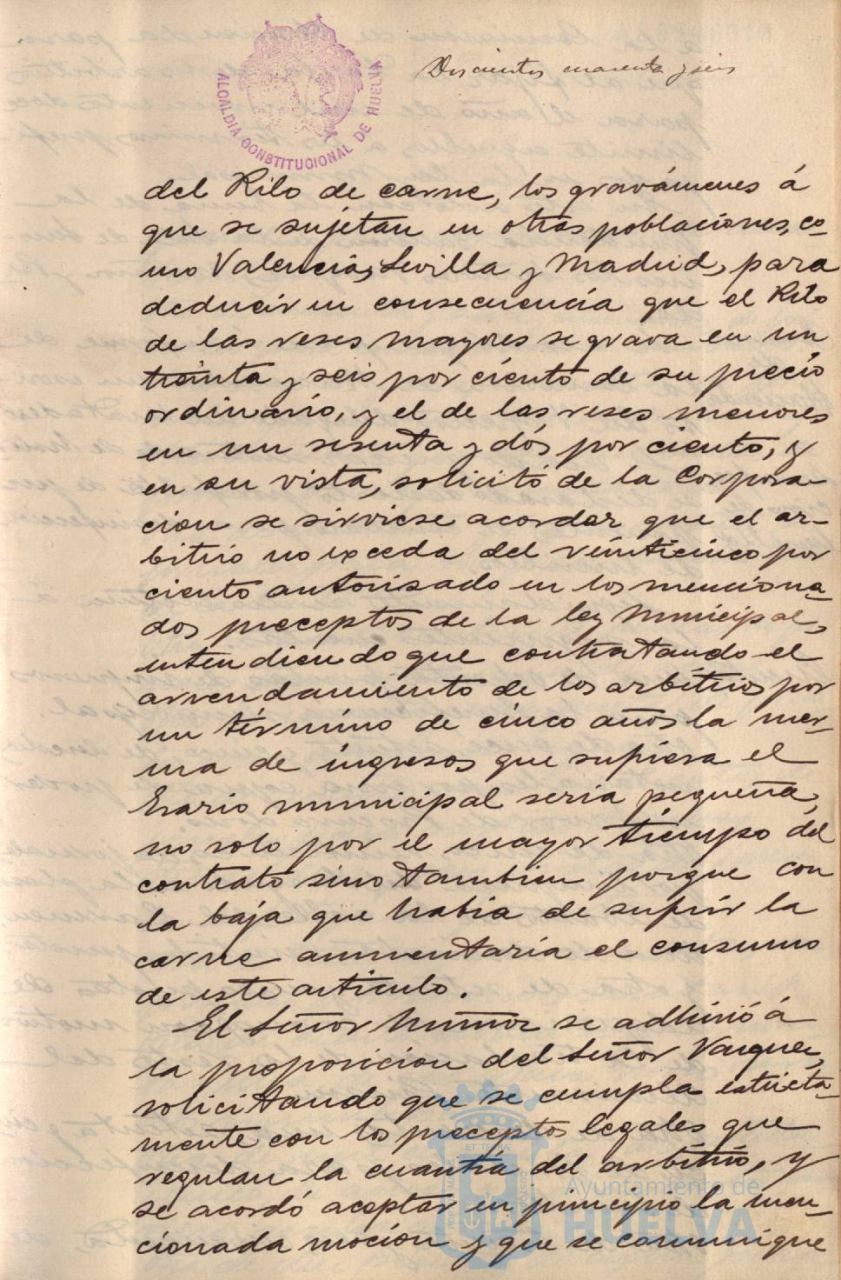 Doscientos cuarenta y seis
ALCALDIA CONSTITUCIONAL DE HUELVA
del Kilo de carne, los gravámenes á
que se sujetan en otras poblaciones, co-
mo Valencia, Sevilla y Madrid, para
deducir en consecuencia que el Kilo
de las reses mayores se grava en un
treinta y seis por ciento de su precio
ordinario, y el de las reses menores
en un sesenta y dós por ciento, y
en su vista, solicitó de la Corpora-
cion se sirviese acordar que el ar-
bitrio no exceda del veinticinco por
ciento autorisado en los menciona-
dos preceptos de la ley Municipal,
entendiendo que contratando el
arrendamiento de los arbitrios por
un término de cinco años la mer-
ma de ingresos que sufriera el
Erario municipal seria pequeña,
no solo por el mayor tiempo del
contrato sino tambien porque con
la baja que habia de sufrir la
carne aumentaria el consumo
de este artículo.
El Señor Muñoz se adhirió á
la proposicion del Señor Vazquez,
solicitando que se cumpla estricta-
mente con los preceptos legales que
regulan la cuantía del arbitrio, y
se acordó aceptar en principio la men-
cionada mocion y que se comunique
Ayuntamiento de
HUELVA